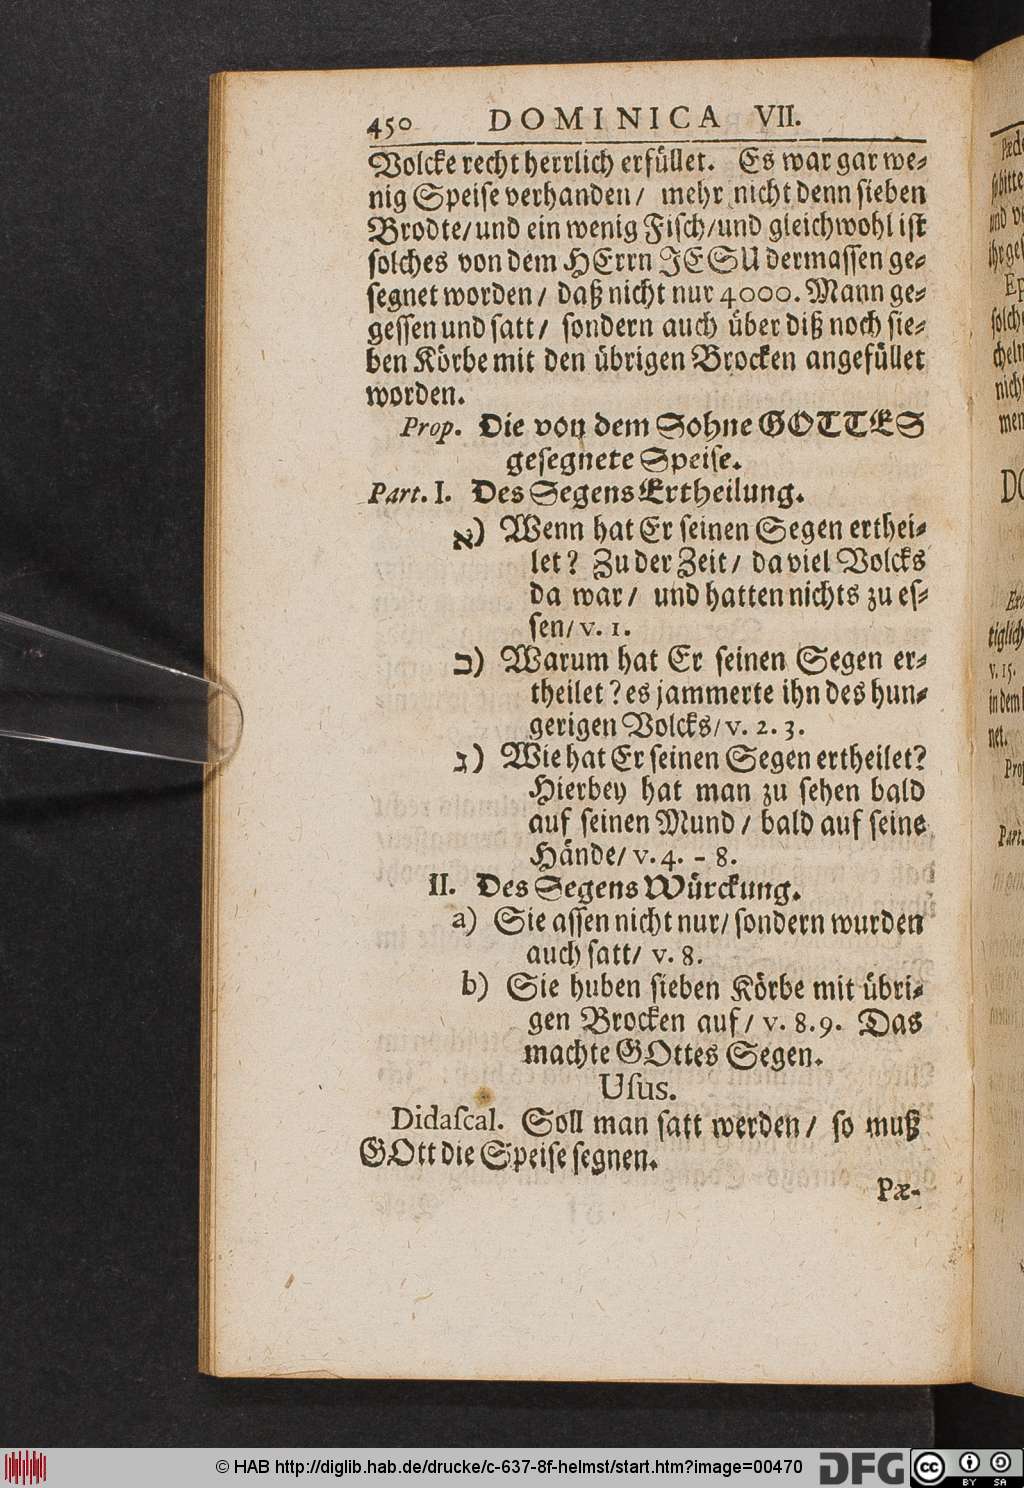 450 DOMINICA VII.
Volcke recht herrlich erfüllet. Es war gar we-
nig Speise verhanden/ mehr nicht denn sieben
Brodte/ und ein wenig Fisch/ und gleichwohl ist
solches von dem HErrn JESU dermassen ge-
segnet worden/ daß nicht nur 4000. Mann ge-
gessen und satt/ sondern auch über diß noch sie-
ben Körbe mit den übrigen Brocken angefüllet
worden.
Prop. Die von dem Sohne GOTTES
gesegnete Speise.
Part. I. Des Segens Ertheilung.
א) Wenn hat Er seinen Segen erthei-
let? Zu der Zeit/ da viel Volcks
da war/ und hatten nichts zu es-
sen/ v. 1.
ב) Warum hat Er seinen Segen er-
theilet? es jammerte ihn des hun-
gerigen Volcks/ v. 2. 3.
ג) Wie hat Er seinen Segen ertheilet?
Hierbey hat man zu sehen bald
auf seinen Mund/ bald auf seine
Hände/ v. 4. - 8.
II. Des Segens Würckung.
a) Sie assen nicht nur/ sondern wurden
auch satt/ v. 8.
b) Sie huben sieben Körbe mit übri-
gen Brocken auf/ v. 8. 9. Das
machte GOttes Segen.
Uſus.
Didaſcal. Soll man satt werden/ so muß
GOtt die Speise segnen.
Pæ-
© HAB http://diglib.hab.de/drucke/c-637-8f-helmst/start.htm?image=00470
DFG
cc BY SA